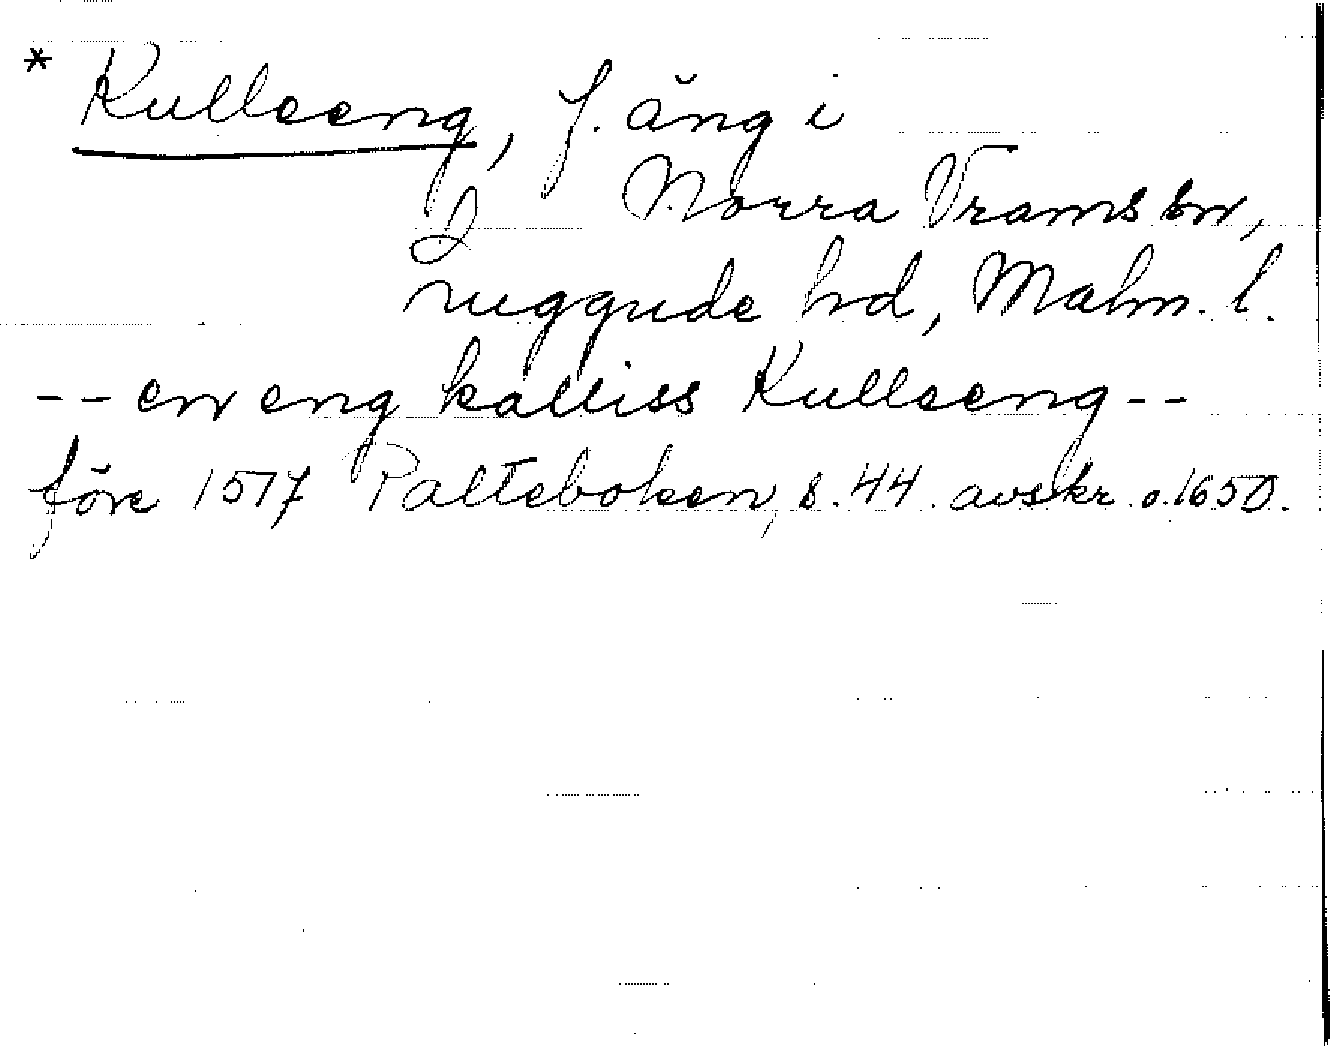 * Kulleeng, f. äng i
Norra Vrams sn,
Luggude hd, Malm. l.
-- en eng kalliss Kulleeng --
före 1577 Palteboken, s. 44. avskr. o. 1650.